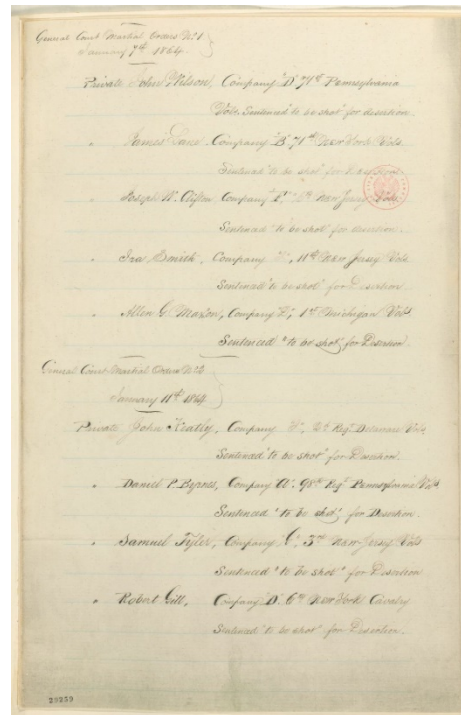 General Court Martial Orders No 1
January 7th 1864.
Private John Wilson, Company "D" 71st Pennsylvania
Vols. Sentenced "to be shot" for desertion.
" James Lane, Company "B" 71st New York Vols.
Sentenced "to be shot" for Desertion
" Joseph W. Clifton, Company New Jersey Vols.
Sentenced "to be shot" for desertion.
" Ira Smith, Company 11th New Jersey Vols
Sentenced "to be shot" for Desertion
" Allen G. Maxson, Company 1st Michigan Vols
Sentenced "to be shot" for Desertion.
General Court Martial Orders No 2
January 11th 1864
Private John Keatly, Company Regt Delaware Vols.
Sentenced "to be shot" for Desertion.
" Daniel P. Byrnes, Company 98th Regt Pennsylvania Vols
Sentenced "to be shot" for Desertion.
" Samuel Tyler, Company "C" 3rd New Jersey Vols
Sentenced "to be shot" for Desertion
" Robert Gill, Company "D" 6th New York Cavalry
Sentenced "to be shot" for Desertion.
29259